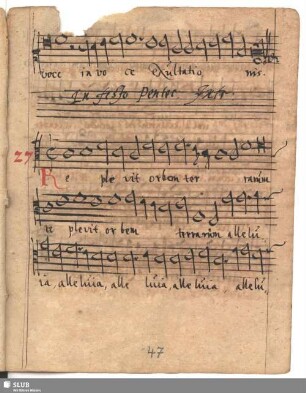 voce in vo ce exultatio nis.
In festo Pentec
27
Re ple vit orbem ter rarum
re plevit orbem terrarum allelu
ia, alleluia, alle luia, alleluia allelu
47
SLUB